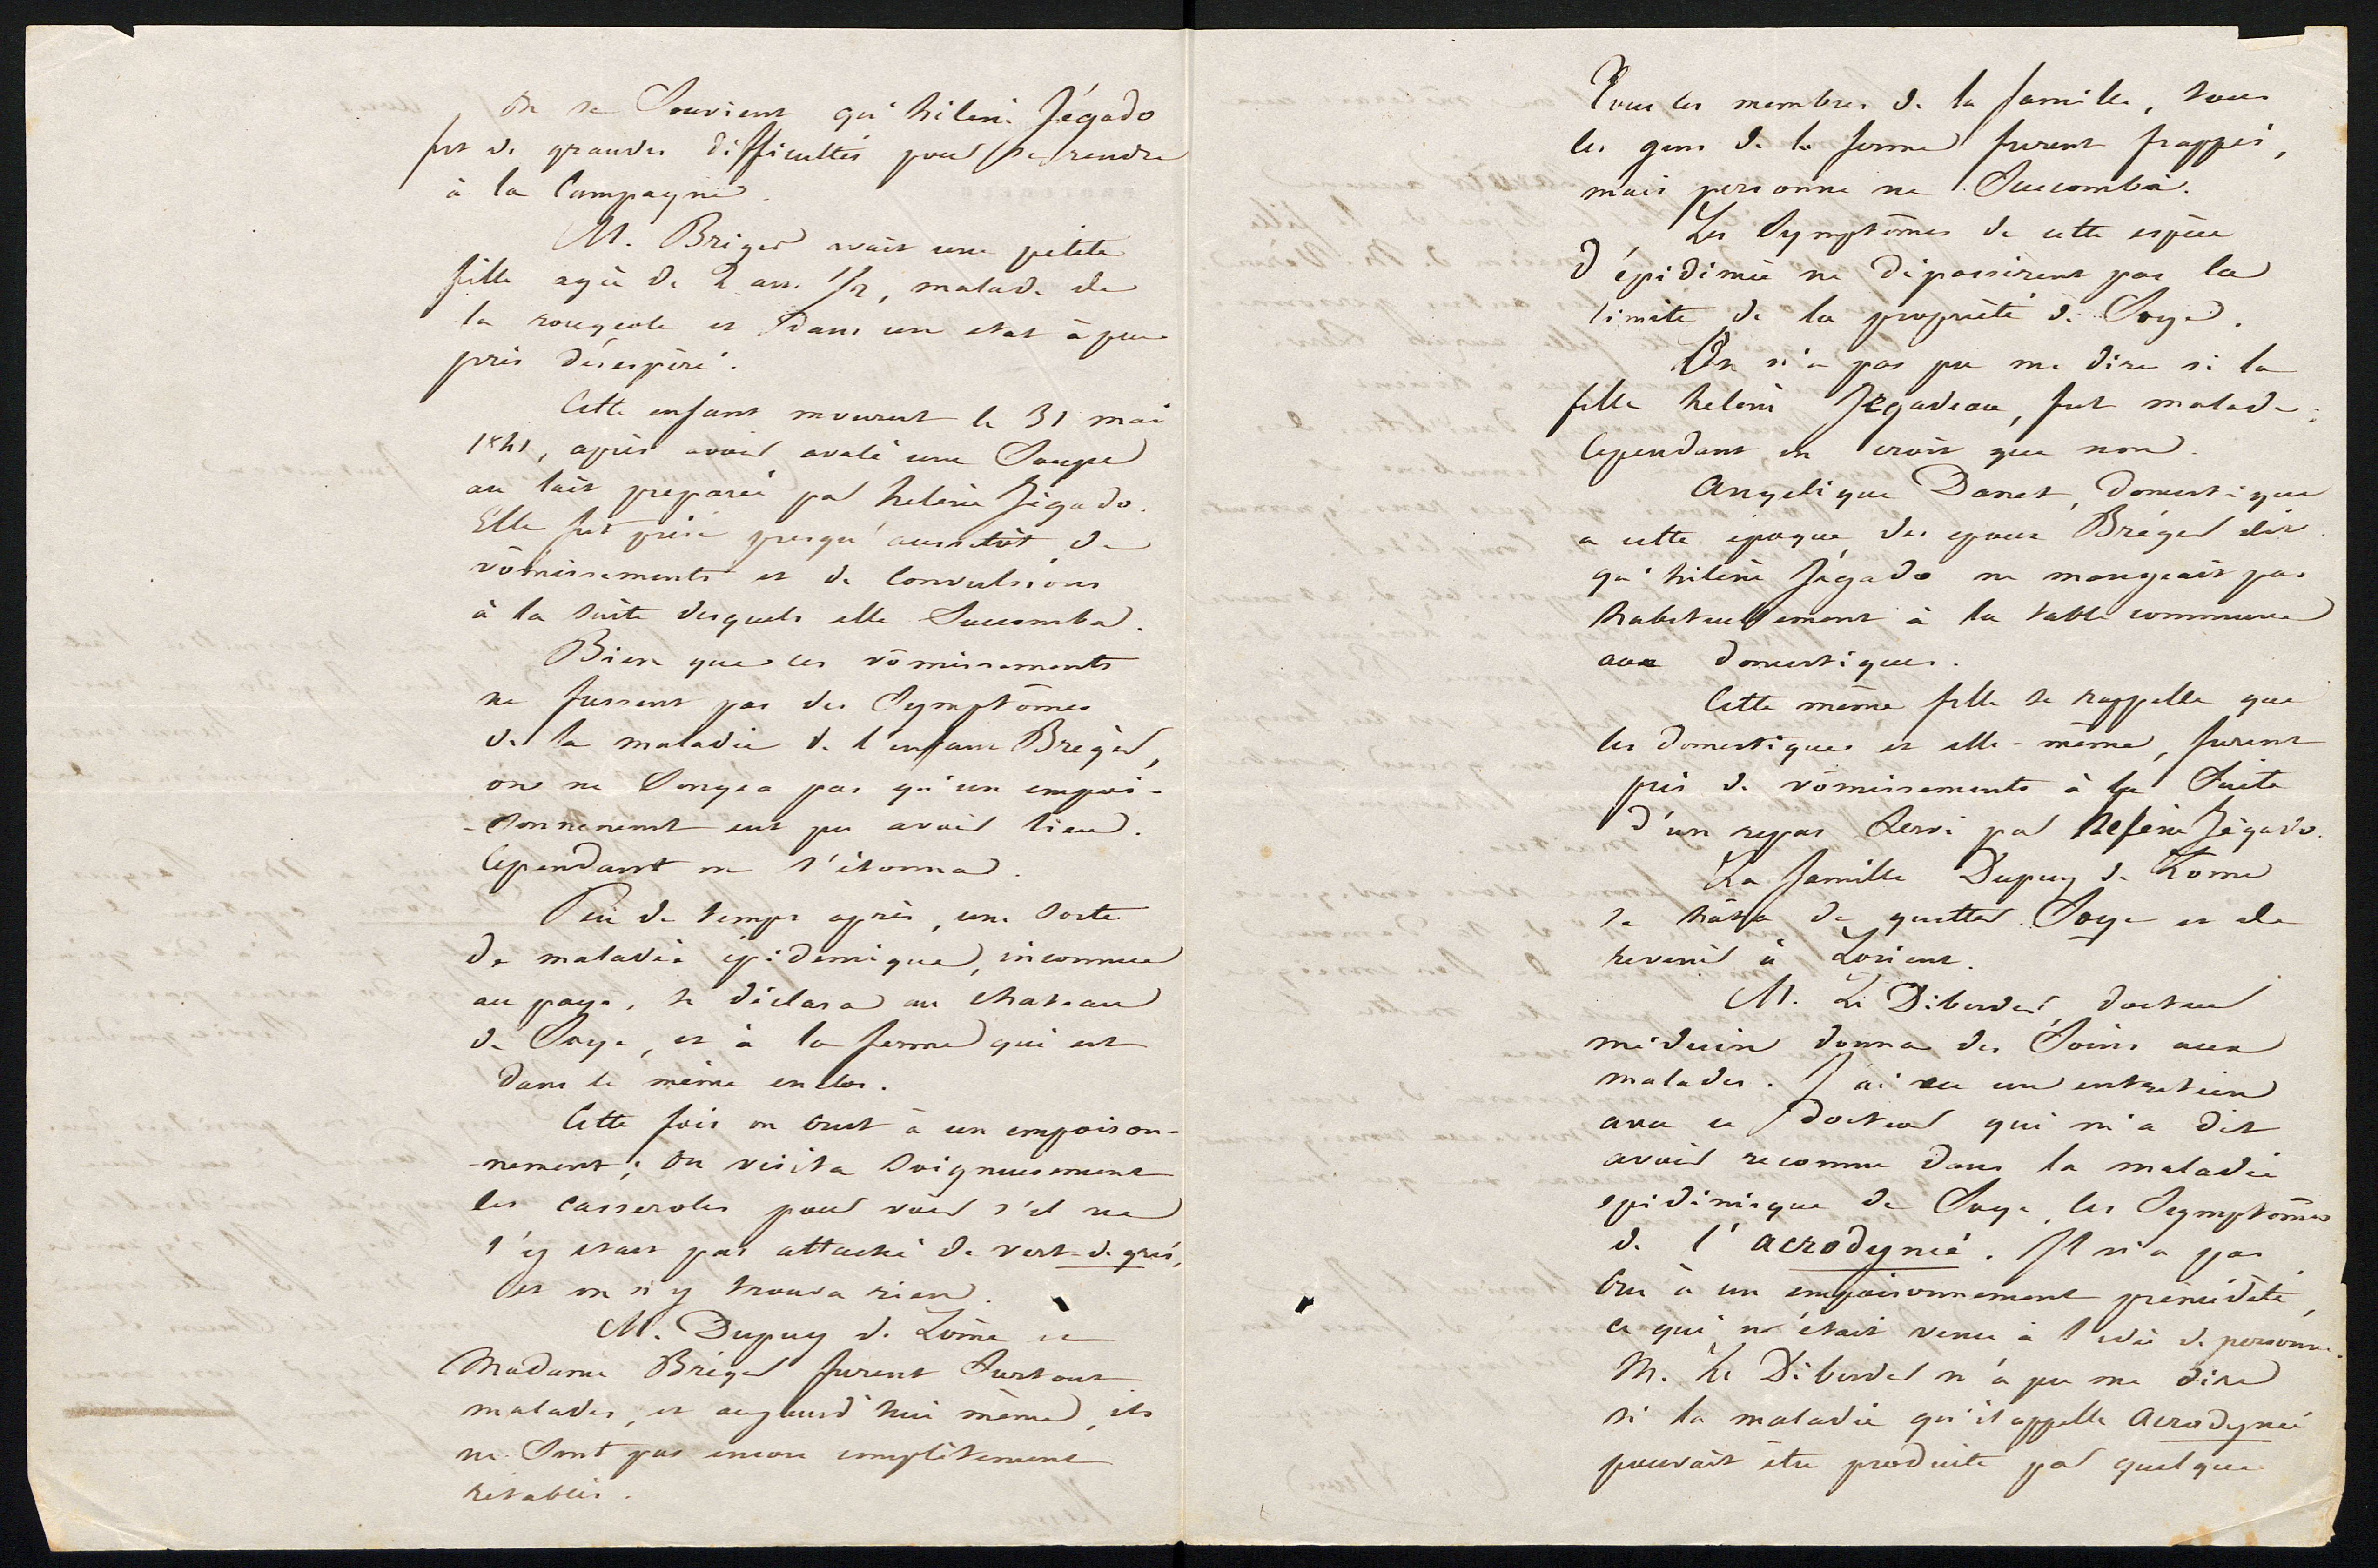 On se Souvient qu'hélène Jégado
fit de grandes difficultés pour se rendre
à la Campagne.
M. Bréger avait une petite
fille agée de 2 ans 1/2, malade de
la rougeole et dans un etat à peu
près désespéré.
Cette enfant mourut le 31 mai
1841, après avoir avalé une Soupe
au lait preparée par helène Jégado.
Elle fut prise presqu'aussitôt de
vômissements et de Convulsions
à la suite desquels elle Succomba.
Bien que ces vômissements
ne fussent pas des Symptômes
de la maladie de l'enfant Bréger,
on ne Songea pas qu'un empoi-
-sonnement eut pu avoir lieu.
Cependant on s'étonna.
Peu de temps après, une sorte
de maladie épidemique, inconnue
au pays, se déclara au chateau
de Soye, et à la ferme qui est
dans le même enclos.
Cette fois on crut à un empoison-
-nement; on visita Soigneusement
les casseroles pour voir s'il ne
s'y etait pas attaché de vert-de-gris,
et on n'y trouva rien.
M. Dupuy de Lôme et
Madame Bréger furent Surtout
malades, et aujourd'hui même, ils
ne Sont pas encore complètement
rétablis.
Tous les membres de la famille, tous
les gens de la ferme furent frappés,
mais personne ne Succomba.
Les Symptômes de cette espèce
d'épidémie ne dépassèrent pas la
limite de la propriété de Soye.
On n'a pas pu me dire si la
fille helène Jégadeau, fut malade;
Cependant on croit que non.
Angelique Danet, domestique
a cette epoque des epoux Bréger dit
qu'hélène Jégado ne mangeait pas
habituellement à la table commune
aux domestiques.
Cette même fille se rappelle que
les domestiques et elle-même, furent
pris de vômissements à la Suite
d'un repas Servi par helène Jégado.
La famille Dupuy de Lome
se hâta de quitter Soye et de
revenir à Lorient.
M. Le Diberder, docteur
médecin donna des Soins aux
malades. J'ai eu un entretien
avec ce docteur qui m'a dit
avoir reconnu dans la maladie
epidémique de Soye, les Symptômes
de l'acrodynie. Il n'a pas
Cru à un empoisonnement prémédité,
ce qui n'était venu à l'idée de personne.
M. Le Diberder n'a pu me dire
si la maladie qu'il appelle acrodynie
pouvait être produite par quelque